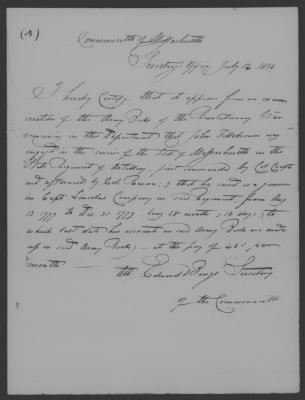 (A)
Commonwealth of Massachusetts
Secretary's Office July 12 1832
I hereby Certify, that it appears from an exami
nation of the Army Books of the Revolutionary War
remaining in this Department that John
engaged in the service of the State of Massachusetts in the
State Regiment of Artillery, first commanded by Col. Crafts
and afterward by Col. Revere; & that he served as a
in Capt. Lincoln's Company in said Regiment, from Aug
13 1777 to Dec 31 1779 being 28 months, 18 days, (to
which last date his accounts in said Army Books are made
up in said Army Books) - at the pay of 48/. per
month
Att Edward D Bangs Secretary
of the Commonwealth